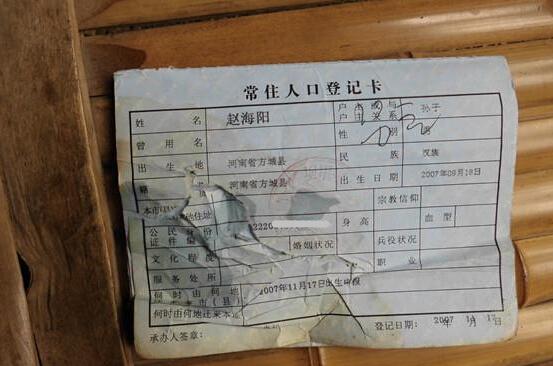 常住人口登记卡
姓名 赵海阳 户主或与户主关系 孙子
曾用名 性别 男
出生地 河南省方城县 民族 汉族
籍贯 河南省方城县 出生日期 2007年09月18日
宗教信仰
公民身份证件编 身高 血型
文化程度 婚姻状况 兵役状况
服务处所 职业
何时由何地 2007年11月17日出生申报
市(县)
何时由何地迁来本
承办人签章: 登记日期: 2007年11月17日